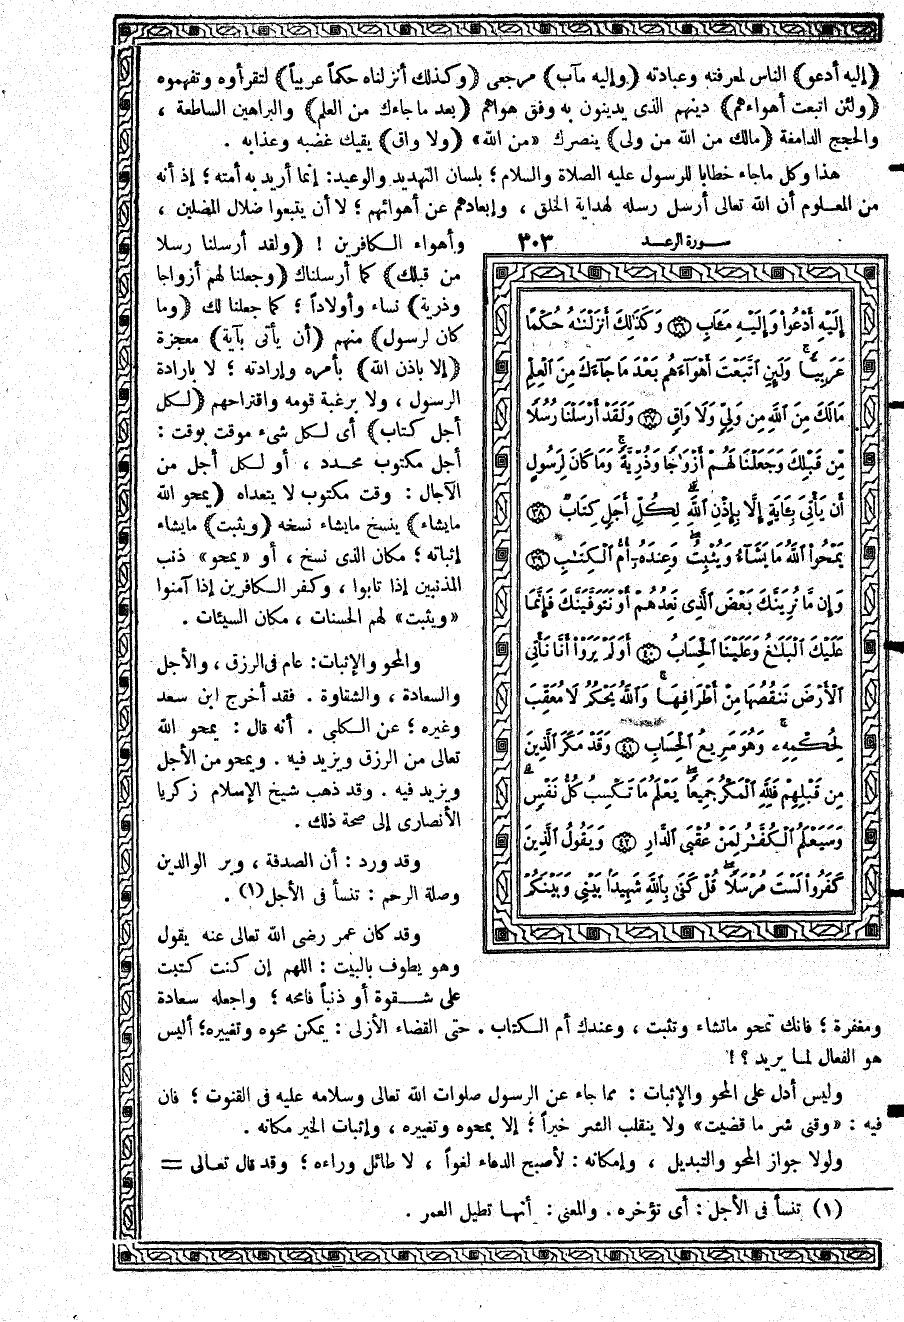 (إليه أدعو) الناس لمعرفته وعبادته (وإليه مآب) مرجعى (وكذلك أنزلناه حكماً عربياً) لتقرأوه وتفهموه
(ولئن اتبعت أهواءهم) دينهم الذى يدينون به وفق هواهم (بعد ما جاءك من العلم) والبراهين الساطعة ،
والحجج الدامغة (مالك من الله من ولى) ينصرك «من الله» (ولا واق) يقيك غضبه وعذابه .
هذا وكل ماجاء خطابا للرسول عليه الصلاة والسلام ؛ بلسان التهديد والوعيد: إنما أريد به أمته ؛ إذ أنه
من المعلوم أن الله تعالى أرسل رسله لهداية الخلق ، وإبعادهم عن أهوائهم ؛ لا أن يتبعوا ضلال المضلين ،
وأهواء الكافرين ! (ولقد أرسلنا رسلا
من قبلك) كما أرسلناك (وجعلنا لهم أزواجا
وذرية) نساء وأولاداً ؛ كما جعلنا لك (وما
كان لرسول) منهم (أن يأتى بآية) معجزة
(إلا باذن الله) بأمره وإرادته ؛ لا بارادة
الرسول ، ولا برغبة قومه واقتراحهم (لكل
أجل كتاب) أى لكل شىء موقت بوقت :
أجل مكتوب محدد ، أو لكل أجل من
الآجال : وقت مكتوب لا يتعداه (يمحو الله
مايشاء) ينسخ مايشاء نسخه (ويثبت) مايشاء
إثباته ؛ مكان الذى نسخ ، أو «يمحو» ذنب
المذنبين إذا تابوا ، وكفر الكافرين إذا آمنوا
«ويثبت» لهم الحسنات ، مكان السيئات .
والمحو والإثبات: عام فى الرزق ، والأجل
والسعادة ، والشقاوة . فقد أخرج ابن سعد
وغيره ؛ عن الكلبى . أنه قال : يمحو الله
تعالى من الرزق ويزيد فيه . ويمحو من الأجل
ويزيد فيه . وقد ذهب شيخ الإسلام زكريا
الأنصارى إلى صحة ذلك .
وقد ورد : أن الصدقة ، وبر الوالدين
وصلة الرحم : تنسأ فى الأجل (١) .
وقد كان عمر رضى الله تعالى عنه يقول
وهو يطوف بالبيت : اللهم إن كنت كتبت
على شقوة أو ذنباً فامحه ؛ واجعله سعادة
سورة الرعد ٣٠٣
إِلَيْهِ أَدْعُواْ وَإِلَيْهِ مَـَٔابِ ٣٦ وَكَذَٰلِكَ أَنزَلْنَٰهُ حُكْمًا
عَرَبِيًّا وَلَئِنِ ٱتَّبَعْتَ أَهْوَآءَهُم بَعْدَ مَا جَآءَكَ مِنَ ٱلْعِلْمِ
مَالَكَ مِنَ ٱللَّهِ مِن وَلِيٍّ وَلَا وَاقٍ ٣٧ وَلَقَدْ أَرْسَلْنَا رُسُلًا
مِّن قَبْلِكَ وَجَعَلْنَا لَهُمْ أَزْوَٰجًا وَذُرِّيَّةً وَمَا كَانَ لِرَسُولٍ
أَن يَأْتِىَ بِـَٔايَةٍ إِلَّا بِإِذْنِ ٱللَّهِ لِكُلِّ أَجَلٍ كِتَابٌ ٣٨
يَمْحُواْ ٱللَّهُ مَا يَشَآءُ وَيُثْبِتُ وَعِندَهُۥٓ أُمُّ ٱلْكِتَٰبِ ٣٩
وَإِن مَّا نُرِيَنَّكَ بَعْضَ ٱلَّذِى نَعِدُهُمْ أَوْ نَتَوَفَّيَنَّكَ فَإِنَّمَا
عَلَيْكَ ٱلْبَلَٰغُ وَعَلَيْنَا ٱلْحِسَابُ ٤٠ أَوَلَمْ يَرَوْاْ أَنَّا نَأْتِى
ٱلْأَرْضَ نَنقُصُهَا مِنْ أَطْرَافِهَا وَٱللَّهُ يَحْكُمُ لَا مُعَقِّبَ
لِحُكْمِهِۦ وَهُوَ سَرِيعُ ٱلْحِسَابِ ٤١ وَقَدْ مَكَرَ ٱلَّذِينَ
مِن قَبْلِهِمْ فَلِلَّهِ ٱلْمَكْرُ جَمِيعًا يَعْلَمُ مَا تَكْسِبُ كُلُّ نَفْسٍ
وَسَيَعْلَمُ ٱلْكُفَّٰرُ لِمَنْ عُقْبَى ٱلدَّارِ ٤٢ وَيَقُولُ ٱلَّذِينَ
كَفَرُواْ لَسْتَ مُرْسَلًا قُلْ كَفَىٰ بِٱللَّهِ شَهِيدًا بَيْنِى وَبَيْنَكُمْ
ومغفرة ؛ فانك تمحو ماتشاء وتثبت ، وعندك أم الكتاب . حتى القضاء الأزلى : يمكن محوه وتغييره؛ أليس
هو الفعال لما يريد ؟!
وليس أدل على المحو والإثبات : مما جاء عن الرسول صلوات الله تعالى وسلامه عليه فى القنوت ؛ فان
فيه : «وقنى شر ما قضيت» ولا ينقلب الشر خيراً ؛ إلا بمحوه وتغييره ، وإثبات الخير مكانه .
ولولا جواز المحو والتبديل ، وإمكانه : لأصبح الدعاء لغواً ، لا طائل وراءه ؛ وقد قال تعالى =
(١) تنسأ فى الأجل : أى تؤخره . والمعنى : أنها تطيل العمر .